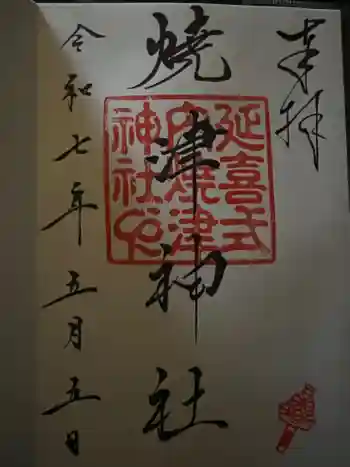 奉拝
焼津神社
延喜式
内焼津
神社印
令和七年五月五日